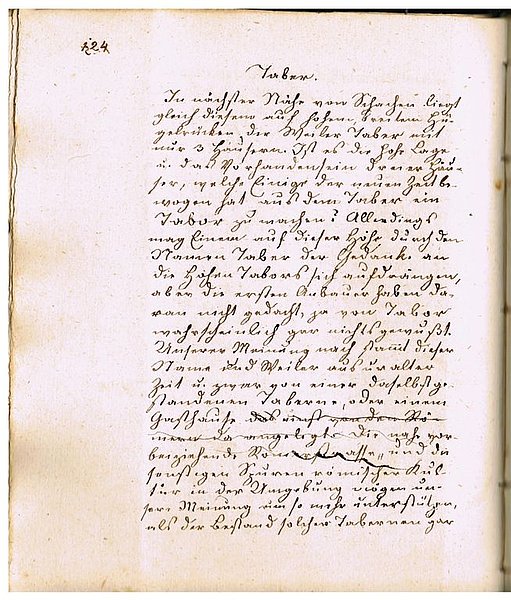 124.
Taber.
In nächster Nähe von Schachen liegt
gleich diesem auf hohem breitem Hü-
gelrücken der Weiler Taber mit
nur 3 Häusern. Ist es die hohe Lage
u. das Vorhandensein dreier Häu-
ser, welche Einige der neuen Zeit be-
wogen hat aus dem Taber ein
Tabor zu machen? Allerdings
mag Einem auf dieser Höhe durch den
Namen Taber der Gedanke an
die Hohen Tabors sich aufdrängen,
aber die ersten Anbauer haben da-
ran nicht gedacht, ja von Tabor
wahrscheinlich gar nichts gewußt.
Unserer Meinung nach stammt dieser
Name und Weiler aus uralter
Zeit u. zwar von einer daselbst ge-
standenen Taberne, oder einem
Gasthause das einst von den Rö-
mern da angelegt. Die nahe vor-
beiziehende Römerstrasse, und die
sonstigen Spuren römischer Kul-
tur in der Umgebung mögen un-
sere Meinung um so mehr unterstützen,
als der Bestand solcher Tabernen gar